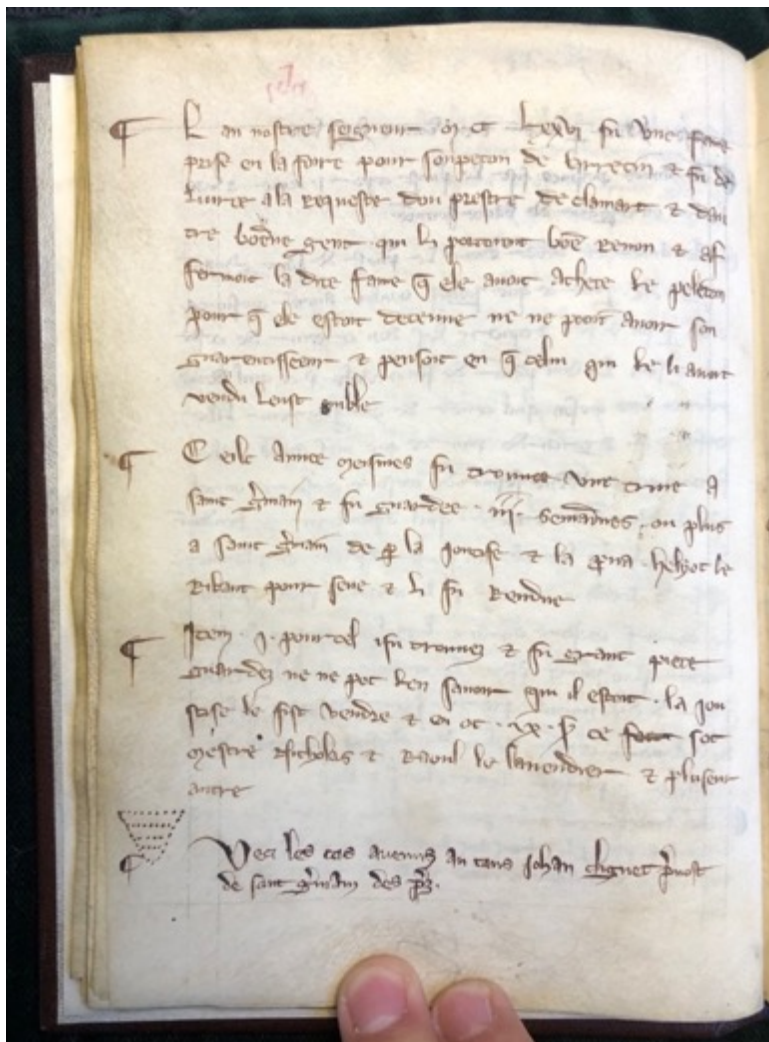 ¶ L an nostre seigneur M CC lxxvi fu une fame
prise en la foire pour soupecon de larrecin & fu de
livree a la requeste dou prestre de clamart & dau
tre boēne gent qui li portoient boē renon & af
fermoit la dite fame q̄ ele avoit achete le peleton
pour q̄ ele estoit detenue ne ne pooit avoir son
guarentisseeur & pensoit en q̄ celui qui le li avoit
vendu leust emble
¶ C eile annee meismes fu trouvee une truie a
saint ḡmain & fu guardee · iii · semainnes ou plus
a saint ḡmain de p la joutise & la prua · helyot le
Ribaut pour seue & li fu Rendue
¶ Item · j · pourcel i fu trouvez & fu grant piece
guardez ne ne pot len savoir qui il estoit · la jou
stise le fist vendre & en ot · ix · s̄ ce sot
mestre Nicholas & Raoul le lavendier & pluseur
autre
¶ Veci les cas avenuz au tans Johan clignet p̄vost
de saint ḡmain des p̄z ·